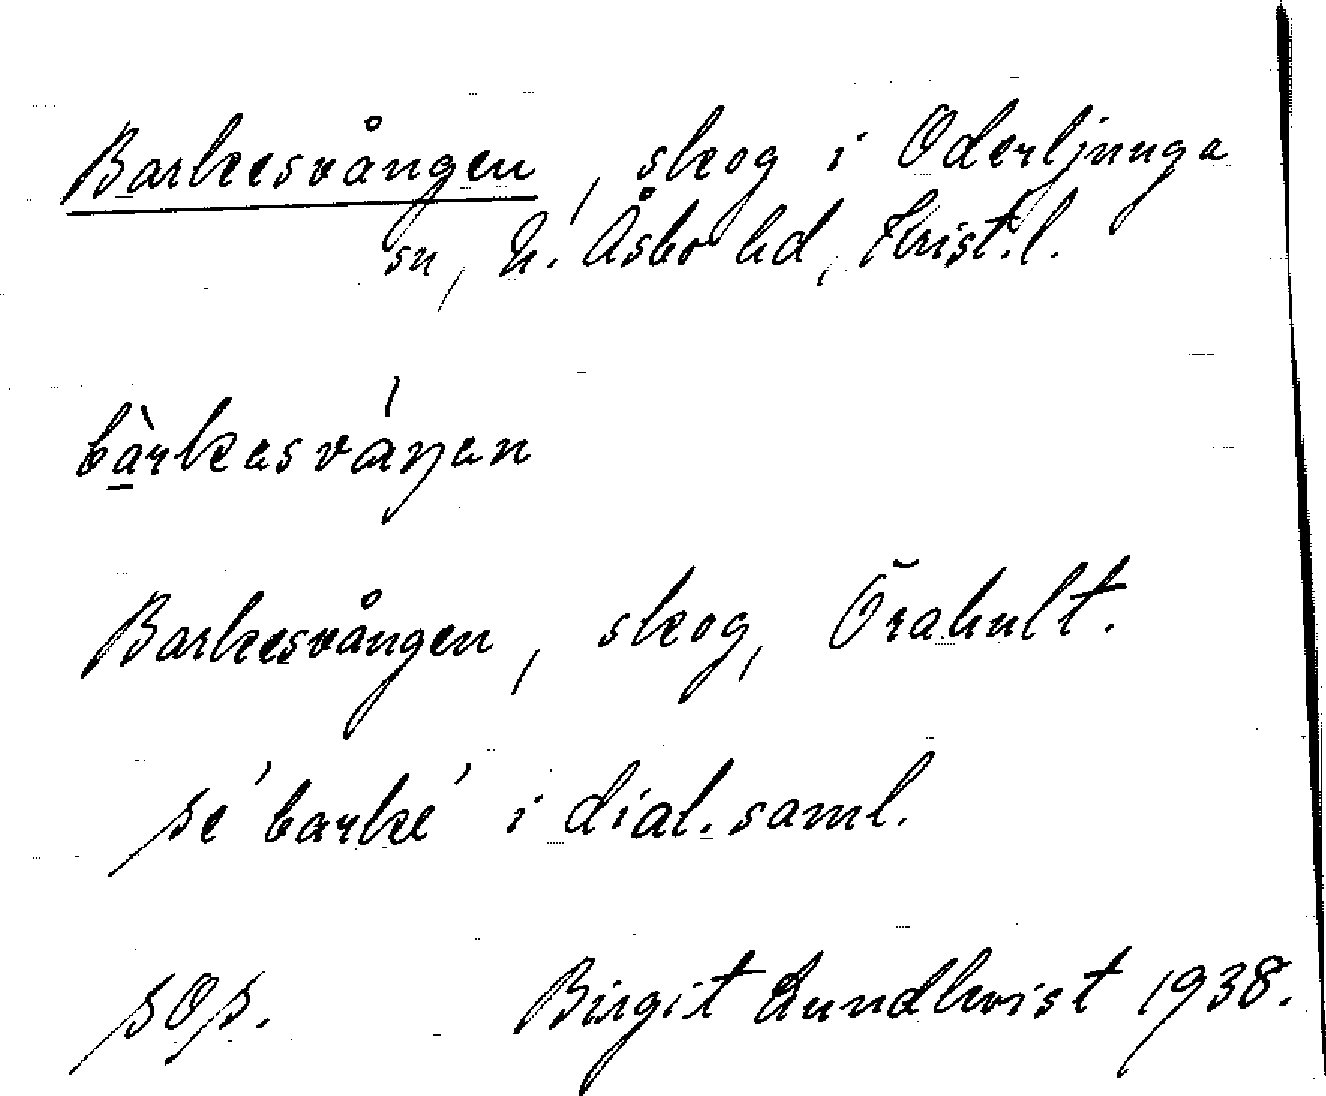 Barkesvången, skog i Oderljunga
sn, N. Åsbo hd, Krist. l.
bàrkasváŋan
Barkesvången, skog, Örahult.
se 'barke' i dial. saml.
Birgit Lundkvist 1938.